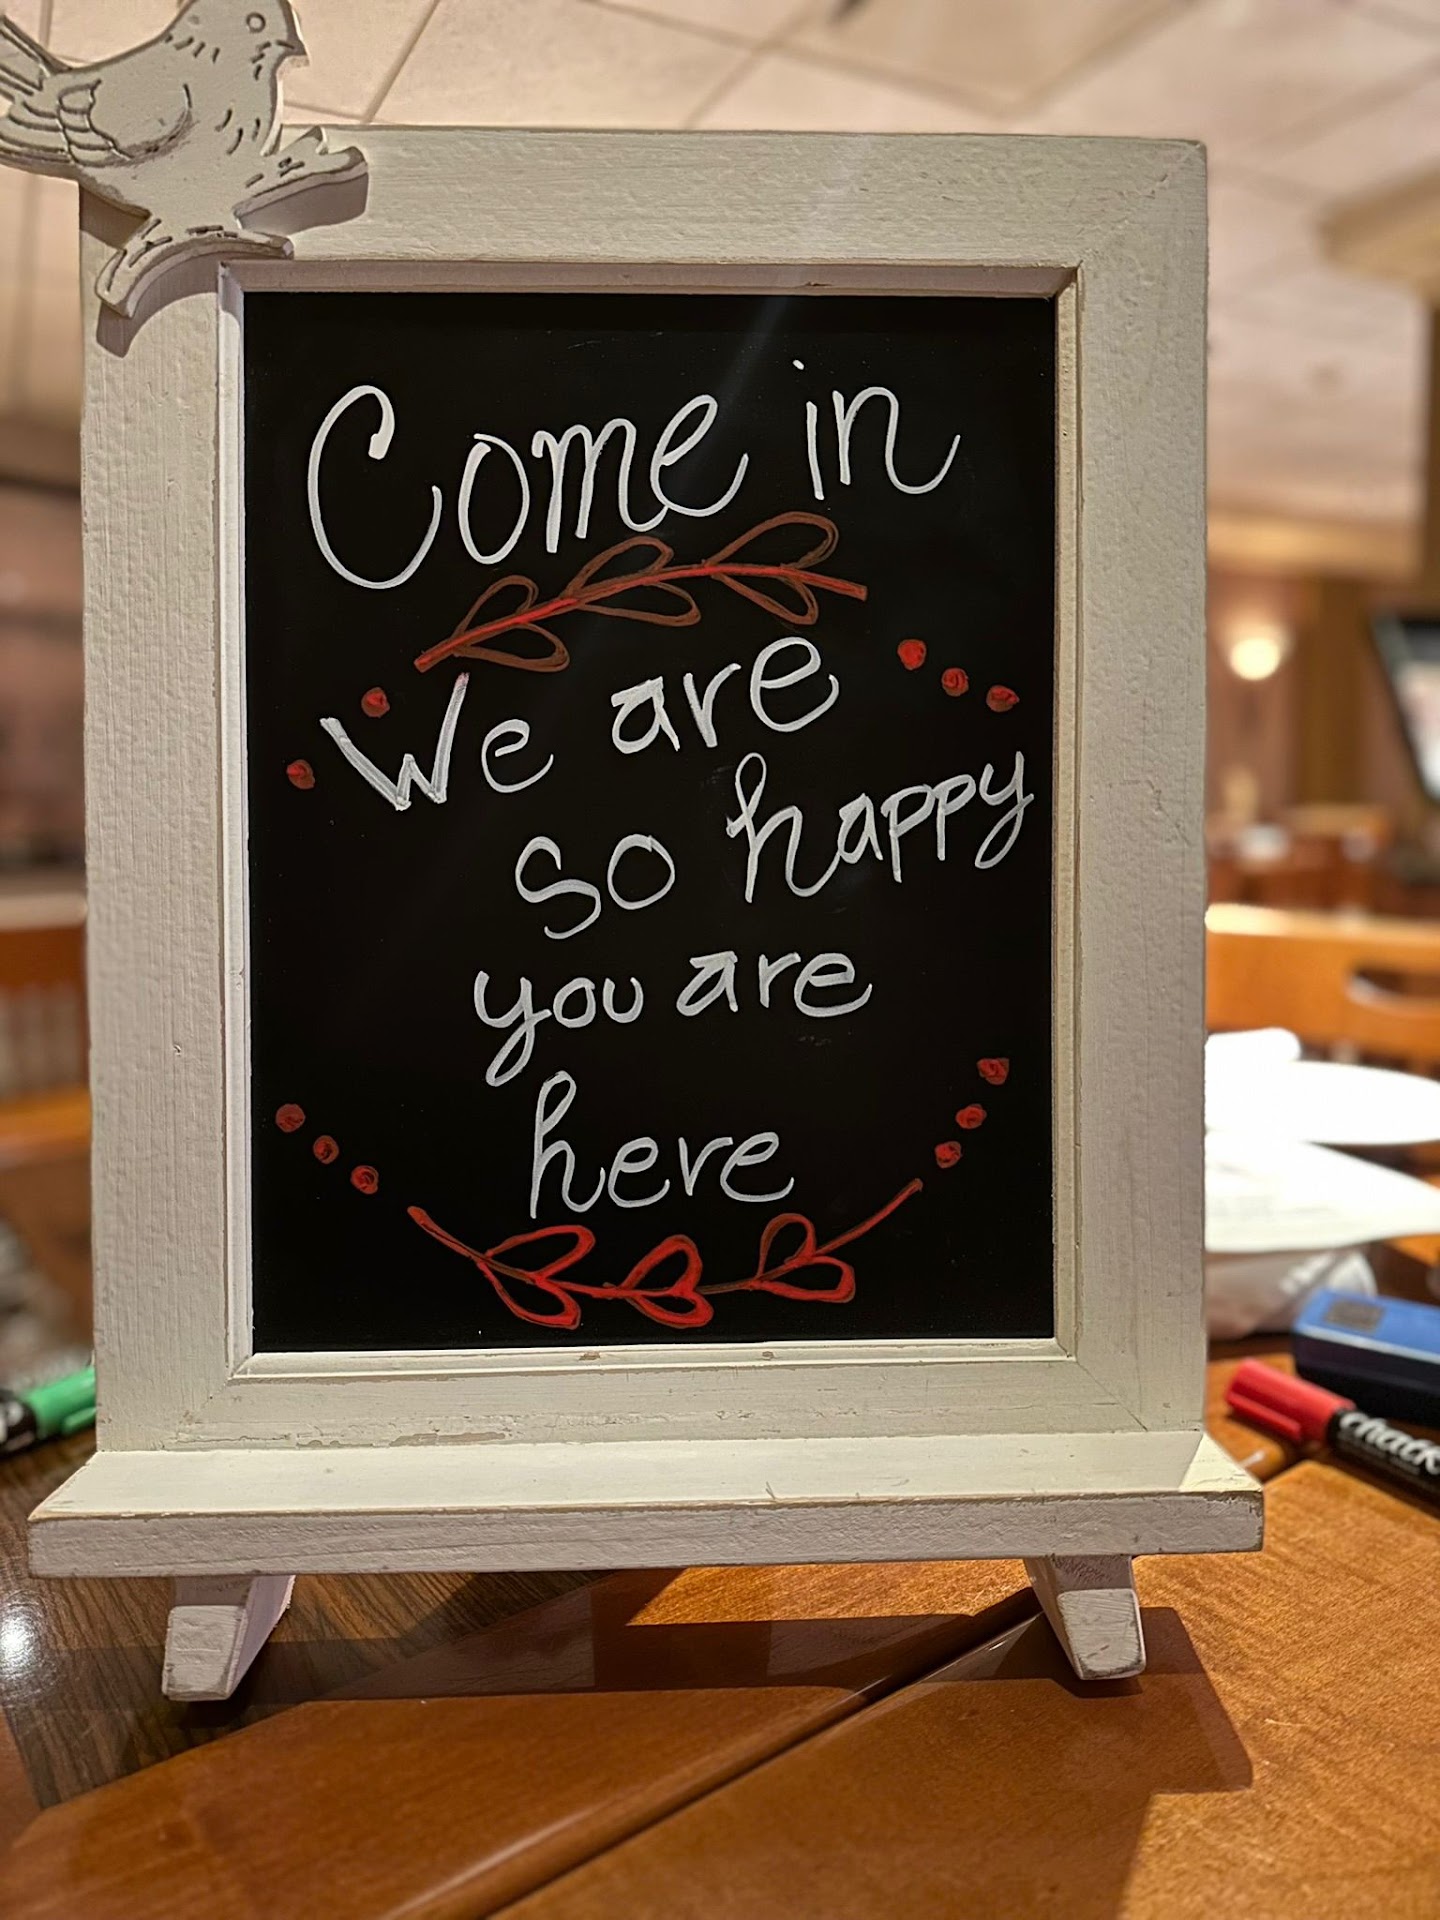 Come in
We are
so happy
you are
here
chalk